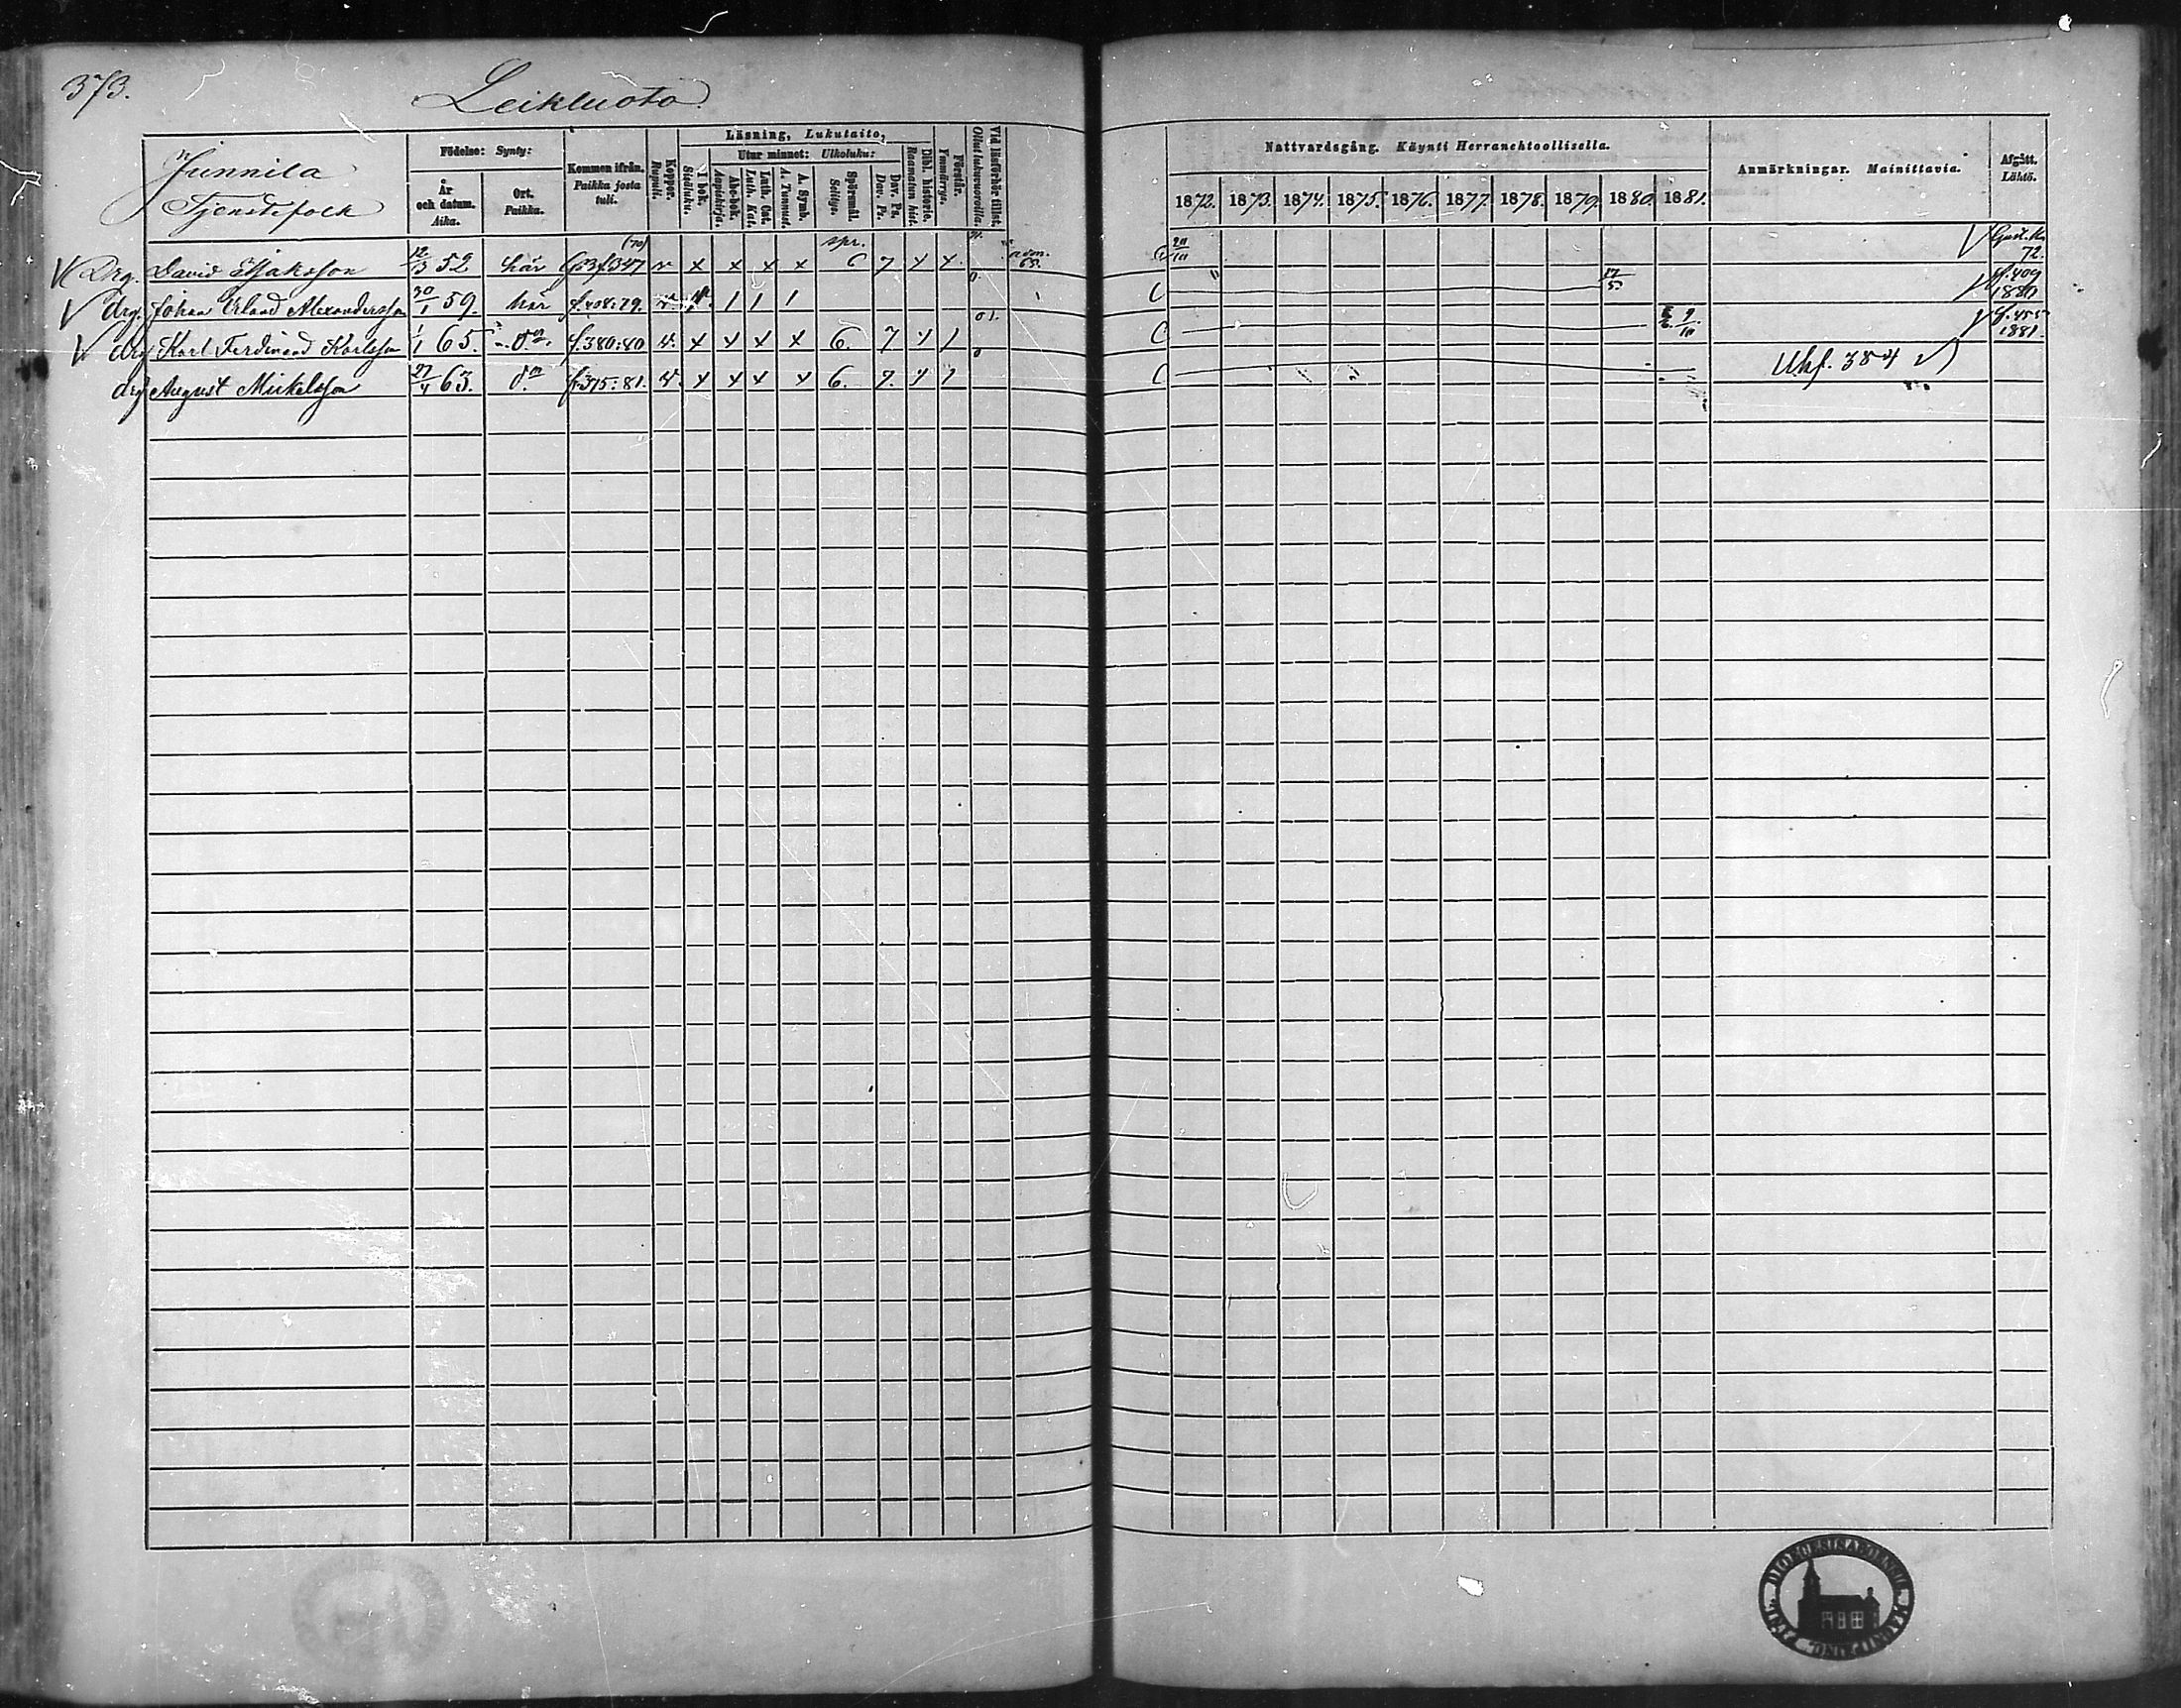 373.
Leikluoto.
Junnila
Tjenstefolk
Födelse: Synty:
År och datum. Aika.
Ort. Paikka.
Kommen ifrån. Paikka josta tuli.
Koppor. Rupuli.
Läsning, Lukutaito,
I bok. Sisäluku.
Utur minnet: Ulkoluku:
Abc-bok. Aapiskirja.
Luth. Cat. Luth. Kat.
A. Symb. A. Tunnust.
Spörsmål. Selitys.
Dav. Ps. Dav. Ps.
Bibl. historie. Raamatun hist.
Förstår. Ymmärrys.
Vid läsförhör tillst. Ollut lukuvuoroilla.
Nattvardsgång. Käynti Herranehtoollisella.
1872. 1873. 1874. 1875. 1876. 1877. 1878. 1879. 1880. 1881.
Anmärkningar. Mainittavia.
Afgått. Lähtö.
Drg. David 12/3 52 här f 347 (70) v x x x x spr. 6 7 x x 72.
drg. Johan Erland Alexandersson 30/1 59. här f. 408:79. 1 1 1 C 17/5 f. 409 1880
drg Karl Ferdinand Karlsson 1/1 65. d:o f. 380:80 v. x x x x 6. 7 x 1 C 9/10 f. 455 1881.
drg August Mickelsson 27/4 63. d:o f. 375:81. v. x x x x 6. 7. x 1 C Uhf. 384